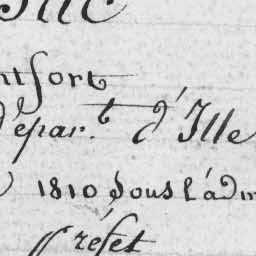 ntfort
Dépar.t d'Ille
1810 Sous l'adm
Préfet